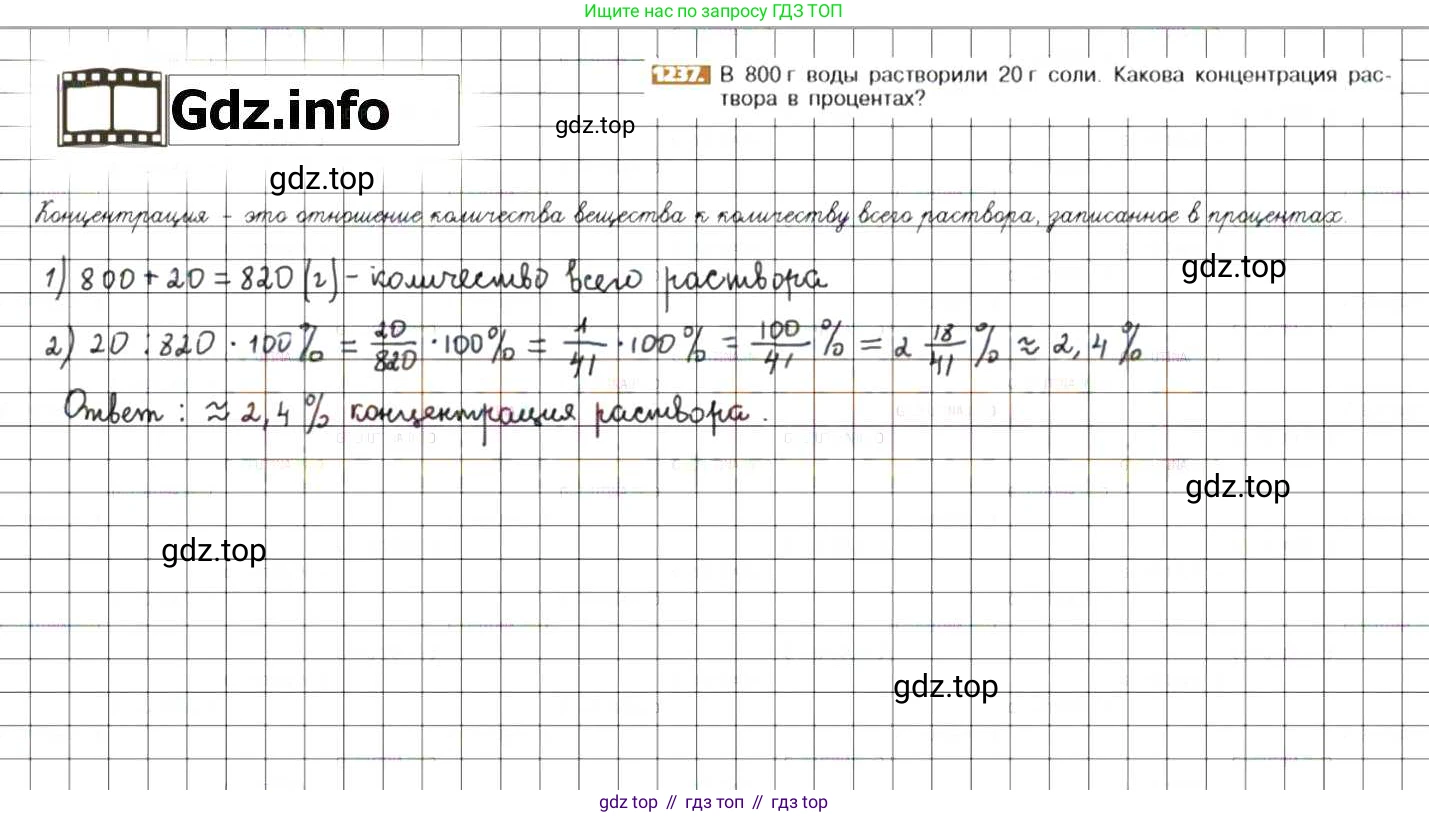 Ищите нас по запросу ГДЗ ТОП
Gdz.info
1237. В 800 г воды растворили 20 г соли. Какова концентрация рас-
твора в процентах?
gdz.top
gdz.top
Концентрация - это отношение количества вещества к количеству всего раствора, записанное в процентах.
gdz.top
1) 800 + 20 = 820 (г) - количество всего раствора
2) 20 : 820 · 100% = 20/820 · 100% = 1/41 · 100% = 100/41 % = 2 18/41 % ≈ 2,4 %
Ответ : ≈ 2,4 % концентрация раствора .
gdz.top
gdz.top
gdz.top
gdz top // гдз топ // гдз top